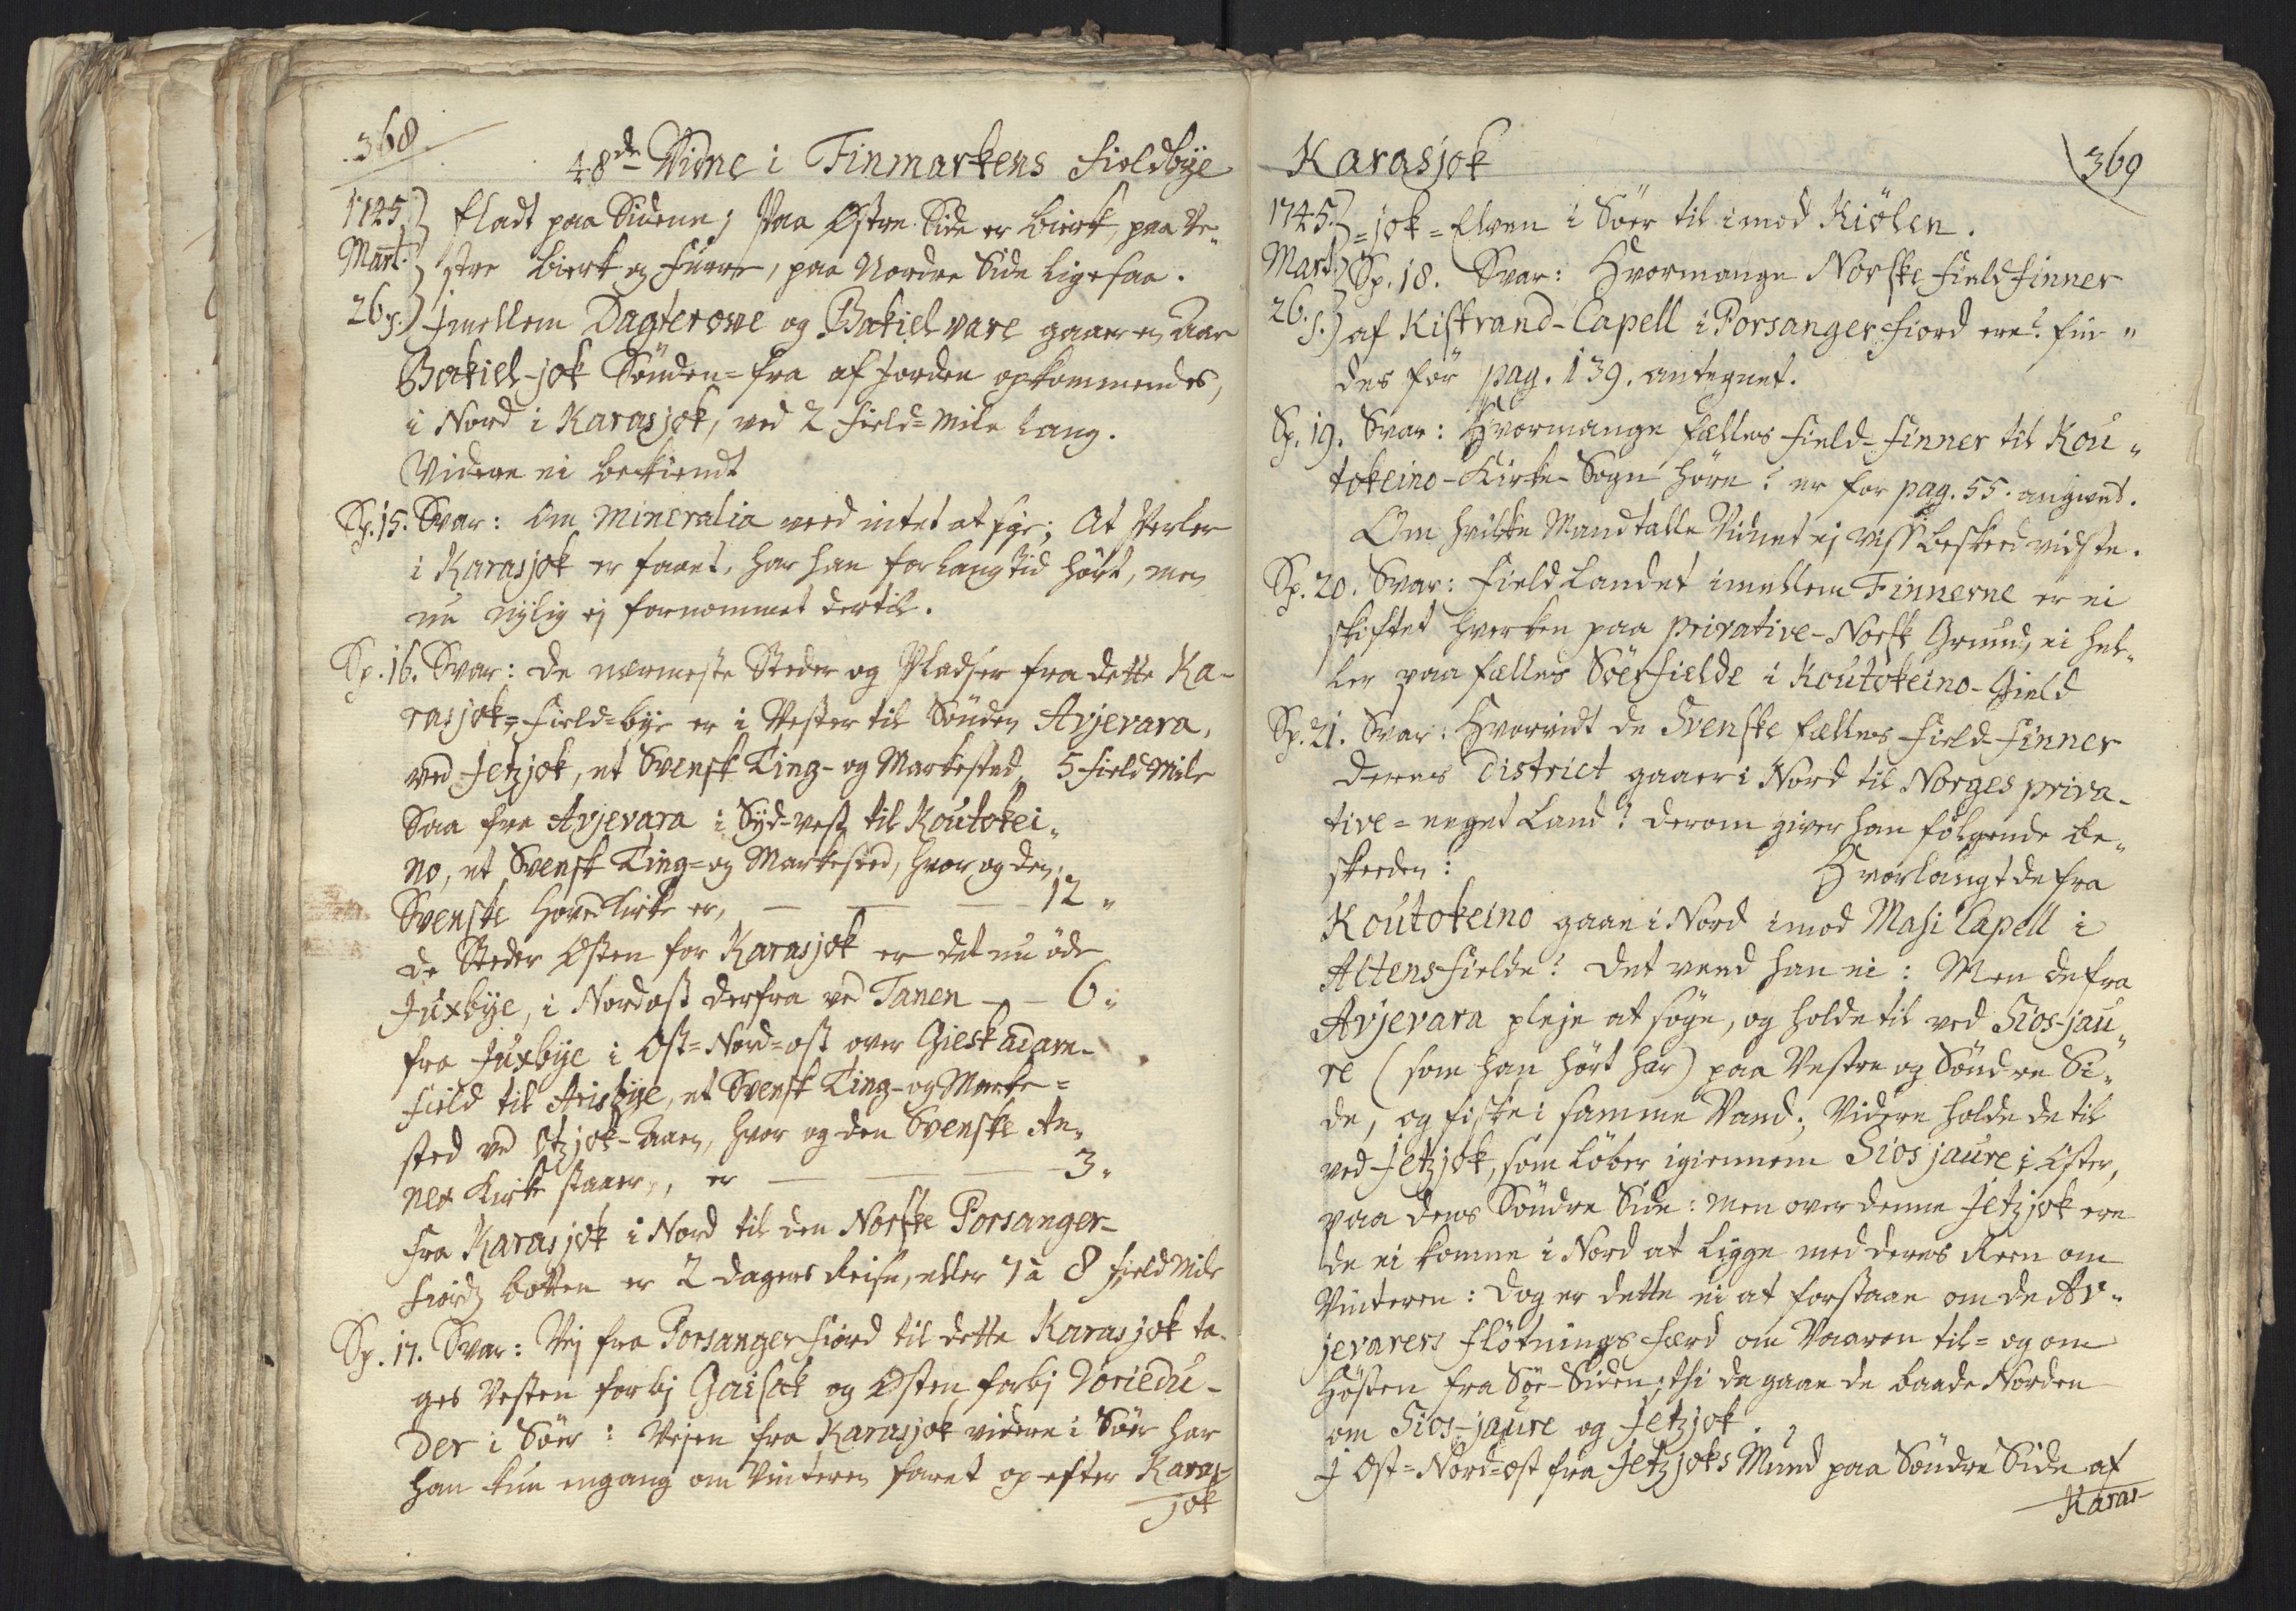 368.
48de Vidne i Finmarkens Fieldbÿe
1745. fladt paa Siderne; Paa Østre Side er Birk, paa Ve-
Mart. stre Birk og Furre, paa Nordre Side ligesaa.
26 s. Jmellem Dagterove og Bækiel vare gaaer en Aae
Bækiel-jok Sønden-fra af Jorden opkommendes,
i Nord i Karasjok, ved 2 Field-Mile lang.
Videre ei bekiendt
Sp. 15. Svar: Om Mineralia veed intet at sige; At Perler
i Karasjok er faaet, har han for lang tid hørt, men
nu nÿlig ej fornommet dertil.
Sp. 16. Svar: De nærmeste Steder og Pladser fra dette Ka-
rasjok-Field-bÿe er i Vester til Sønden Avjevara,
ved Jetzjok, et Svensk Ting- og Markested, 5 Field Mile
Saa fra Avjevara i Sÿd-vest til Koutokei-
no, et Svensk Ting- og Markested, hvor og den
Svenske Hoved Kirke er, — — — 12 "
De Steder Østen for Karasjok er det nu øde
Juxbÿe, i Nordost derfra ved Tanen — — 6 "
fra Juxbÿe i Ost-Nord-ost over Gieskadam-
field til Arisbÿe, et Svensk Ting- og Marke-
sted ved Utzjok-Aaen, hvor og den Svenske An-
nex Kirke staaer, er — — 3 "
Fra Karasjok i Nord til den Norske Porsanger-
Fiords botten er 2 dagers Reise, eller 7 à 8 Field Mile
Sp. 17. Svar: Vej fra Porsanger Fiord til dette Karasjok ta-
ges Vesten forbj Gaisæk og Østen forbj Voriedu-
der i Søer: Vejen fra Karasjok videre i Søer har
han kun engang om Vinteren faret op-efter Karas-
jok
Karasjok
369
1745. -jok-Elven i Søer til imod Kiølen.
Marti Sp. 18. Svar: Hvormange Norske Field Finner
26. s. af Kistrand-Capell i Porsanger Fiord ere? fin-
des før pag. 139. antegnet.
Sp. 19. Svar: Hvormange fælles Field-Finner til Kou-
tokeino-Kirke-Sogn høre? er for pag. 55. angivet.
Om hvilke Mandtalle Vidnet ej viss beskeed vidste.
Sp. 20. Svar: Field Landet imellem Finnerne er ei
skiftet hverken paa privative-Norsk Grund, ei hel-
ler paa fælles Søerfielde i Koutokeino-Gield
Sp. 21. Svar: Hvorvidt de Svenske fælles Field-Finner
deres District gaaer i Nord til Norges priva-
tive-eeget Land? derom giver han følgende be-
skeeden: Hvorlangt de fra
Koutokeino gaae i Nord imod Masi Capell i
Altens fielde? det veed han ei: Men de fra
Avjevara pleje at søge, og holde til ved Sios-jau-
re (som han hørt har) paa Vestre og Søndre Si-
de, og fiske i samme Vand; Videre holde de til
ved Jetzjok, som løber igiennem Siosjaure i Øster,
paa dens Søndre Side: Men over denne Jetzjok ere
de ei komne i Nord at ligge med deres Reen om
Vinteren: Dog er dette ei at forstaae om de Av-
jevarers Fløtnings færd om Vaaren til- og om
Høsten fra Søe-Siden; thi da gaae de baade Norden
om Sios-jaure og Jetzjok.
J Ost-Nord-ost fra Jetzjoks Mund paa Søndre Side af
Karas-